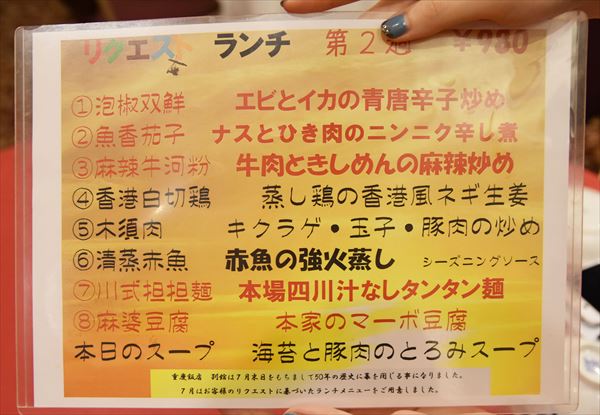 リクエスト ランチ 第2週 ¥980
①泡椒双鮮 エビとイカの青唐辛子炒め
②魚香茄子 ナスとひき肉のニンニク辛し煮
③麻辣牛河粉 牛肉ときしめんの麻辣炒め
④香港白切鶏 蒸し鶏の香港風ネギ生姜
⑤木須肉 キクラゲ・玉子・豚肉の炒め
⑥清蒸赤魚 赤魚の強火蒸し シーズニングソース
⑦川式担担麺 本場四川汁なしタンタン麺
⑧麻婆豆腐 本家のマーボ豆腐
本日のスープ 海苔と豚肉のとろみスープ
重慶飯店 別館は7月末日をもちまして50年の歴史に幕を閉じる事になりました。
7月はお客様のリクエストに基づいたランチメニューをご用意しました。